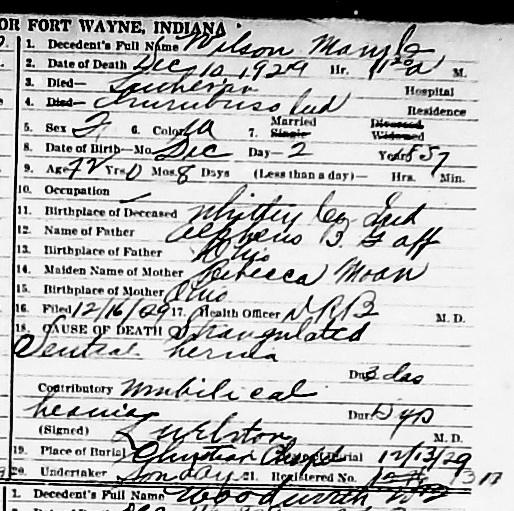 OR FORT WAYNE, INDIANA
1. Decedent's Full Name Wilson
2. Date of Death Dec 10 1929 Hr. 11 20 a M.
3. Died— Lutheran Hospital
4. Died— Churubusco Ind Residence
5. Sex F 6. Color W 7. Married Single Divorced Widowed
8. Date of Birth—Mo. Dec Day— 2 Year 1857
9. Age 72 Yrs. 0 Mos. 8 Days (Less than a day)— Hrs. Min.
10. Occupation
11. Birthplace of Deceased Whitley Co Ind
12. Name of Father Alpheus B Gaff
13. Birthplace of Father Ohio
14. Maiden Name of Mother Rebecca Moan
15. Birthplace of Mother Ohio
16. Filed 12/16/29 17. Health Officer M. D.
18. CAUSE OF DEATH Strangulated
Ventral hernia
Dur. 3 das
Contributory Umbilical
hernia Dur.
(Signed) M. D.
19. Place of Burial Christian Chapel Burial 12/13/29
20. Undertaker 21. Registered No.
1. Decedent's Full Name